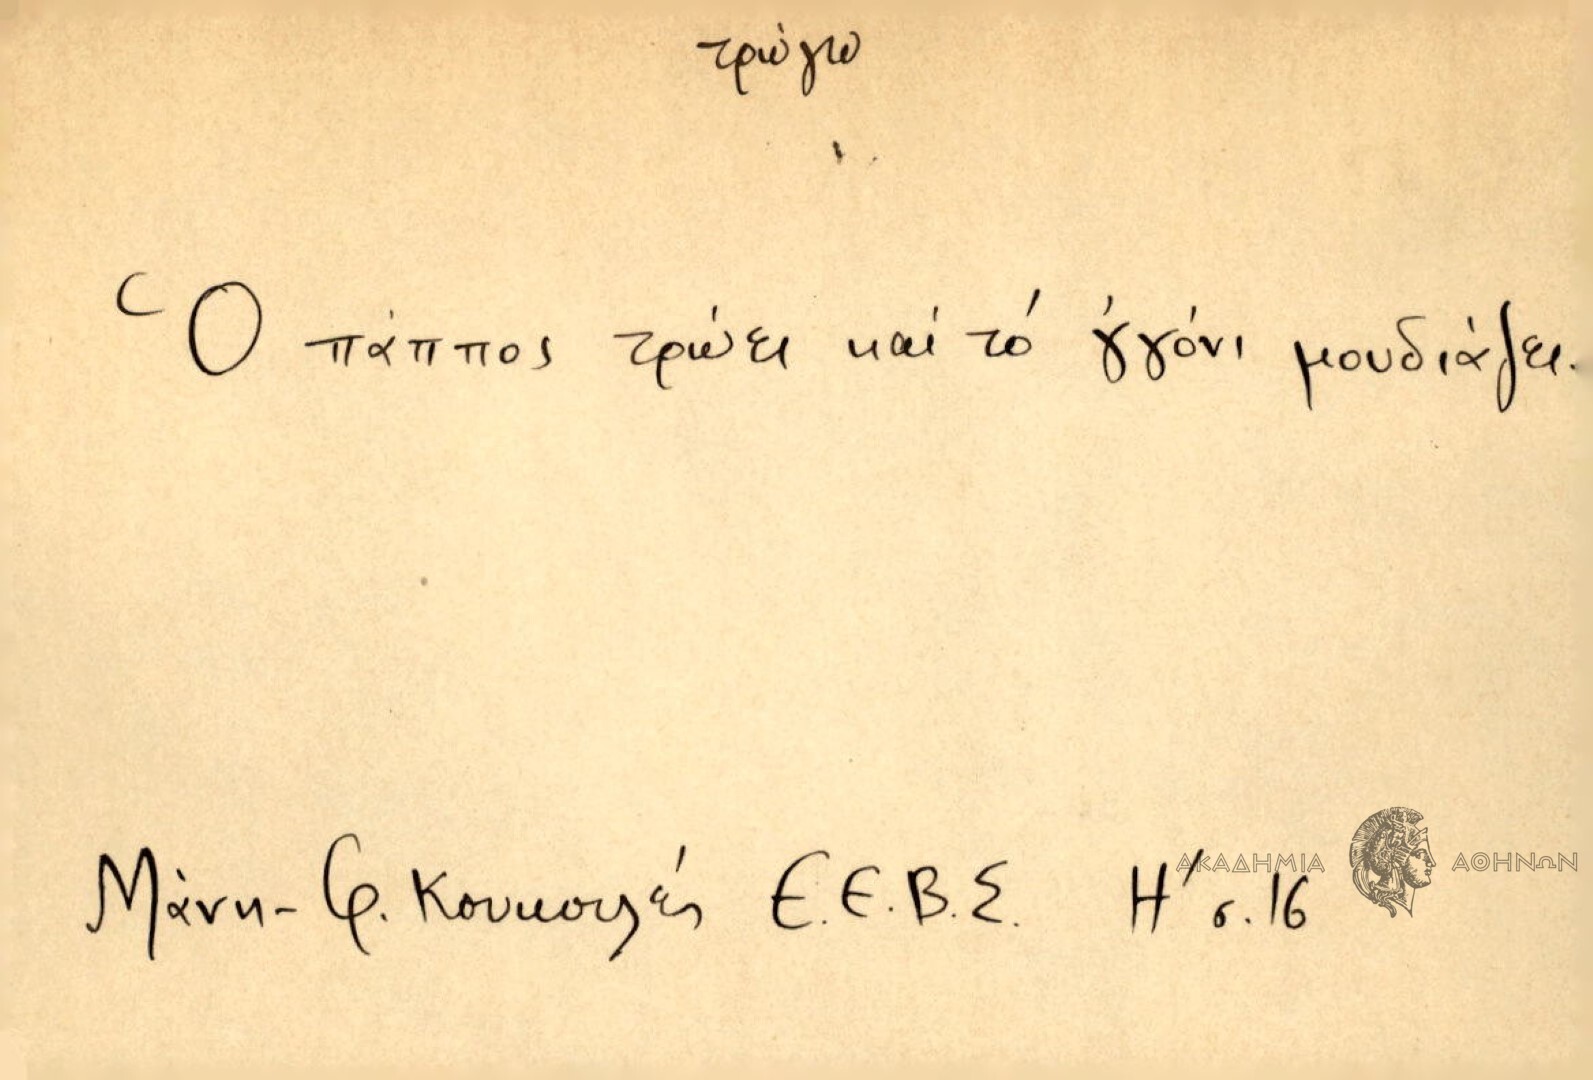 τρώγω
Ὁ πάππος τρώει καί τό 'γγόνι μουδιάζει.
Μάνη - Φ. Κουκουλές Ε.Ε.Β.Σ. Η' σ. 16
ΑΚΑΔΗΜΙΑ ΑΘΗΝΩΝ